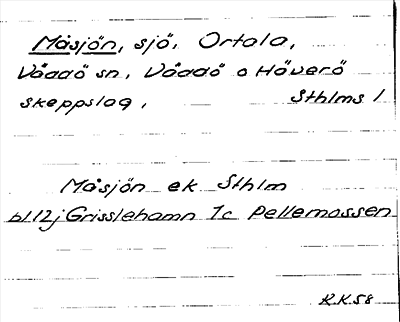 Måsjön, sjö, Ortala,
Väddö sn, Väddö o Häverö
skeppslag, Sthlms l
Måsjön ek Sthlm
bl.12j Grisslehamn 1c Pellemossen
R.K.58